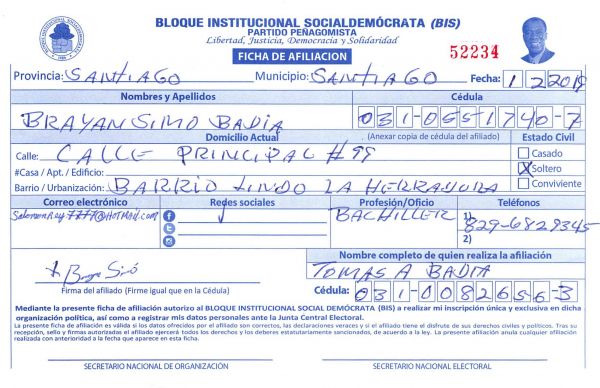 BLOQUE INSTITUCIONAL SOCIALDEMÓCRATA (BIS)
PARTIDO PEÑAGOMISTA
Libertad, Justicia, Democracia y Solidaridad
FICHA DE AFILIACION
52234
Provincia: SANTIAGO Municipio: SANTIAGO Fecha: 1 2 2018
Nombres y Apellidos Cédula
BRAYAN SIMO BADIA 031-0551740-7
Domicilio Actual (Anexar copia de cédula del afiliado) Estado Civil
Calle: CALLE PRINCIPAL #99 Casado
#Casa / Apt. / Edificio: X Soltero
Barrio / Urbanización: BARRIO LINDO LA HERRADURA Conviviente
Correo electrónico Redes sociales Profesión/Oficio Teléfonos
SalomonRey7777@HOTMail.com BACHILLER 1) 829-6829345
2)
Nombre completo de quien realiza la afiliación
TOMAS A BADIA
Firma del afiliado (Firme igual que en la Cédula) Cédula: 031-0082656-3
Mediante la presente ficha de afiliación autorizo al BLOQUE INSTITUCIONAL SOCIAL DEMÓCRATA (BIS) a realizar mi inscripción única y exclusiva en dicha
organización política, así como a registrar mis datos personales ante la Junta Central Electoral.
La presente ficha de afiliación es válida si los datos ofrecidos por el afiliado son correctos, las declaraciones veraces y si el afiliado tiene el disfrute de sus derechos civiles y políticos. Tras su
recepción, sello y firmas autorizadas el afiliado ejercerá todos los derechos y los deberes estatutariamente sancionados, de acuerdo a la ley. La presente afiliación anula cualquier afiliación
realizada con anterioridad a la fecha que aparece en esta ficha.
SECRETARIO NACIONAL DE ORGANIZACIÓN SECRETARIO NACIONAL ELECTORAL